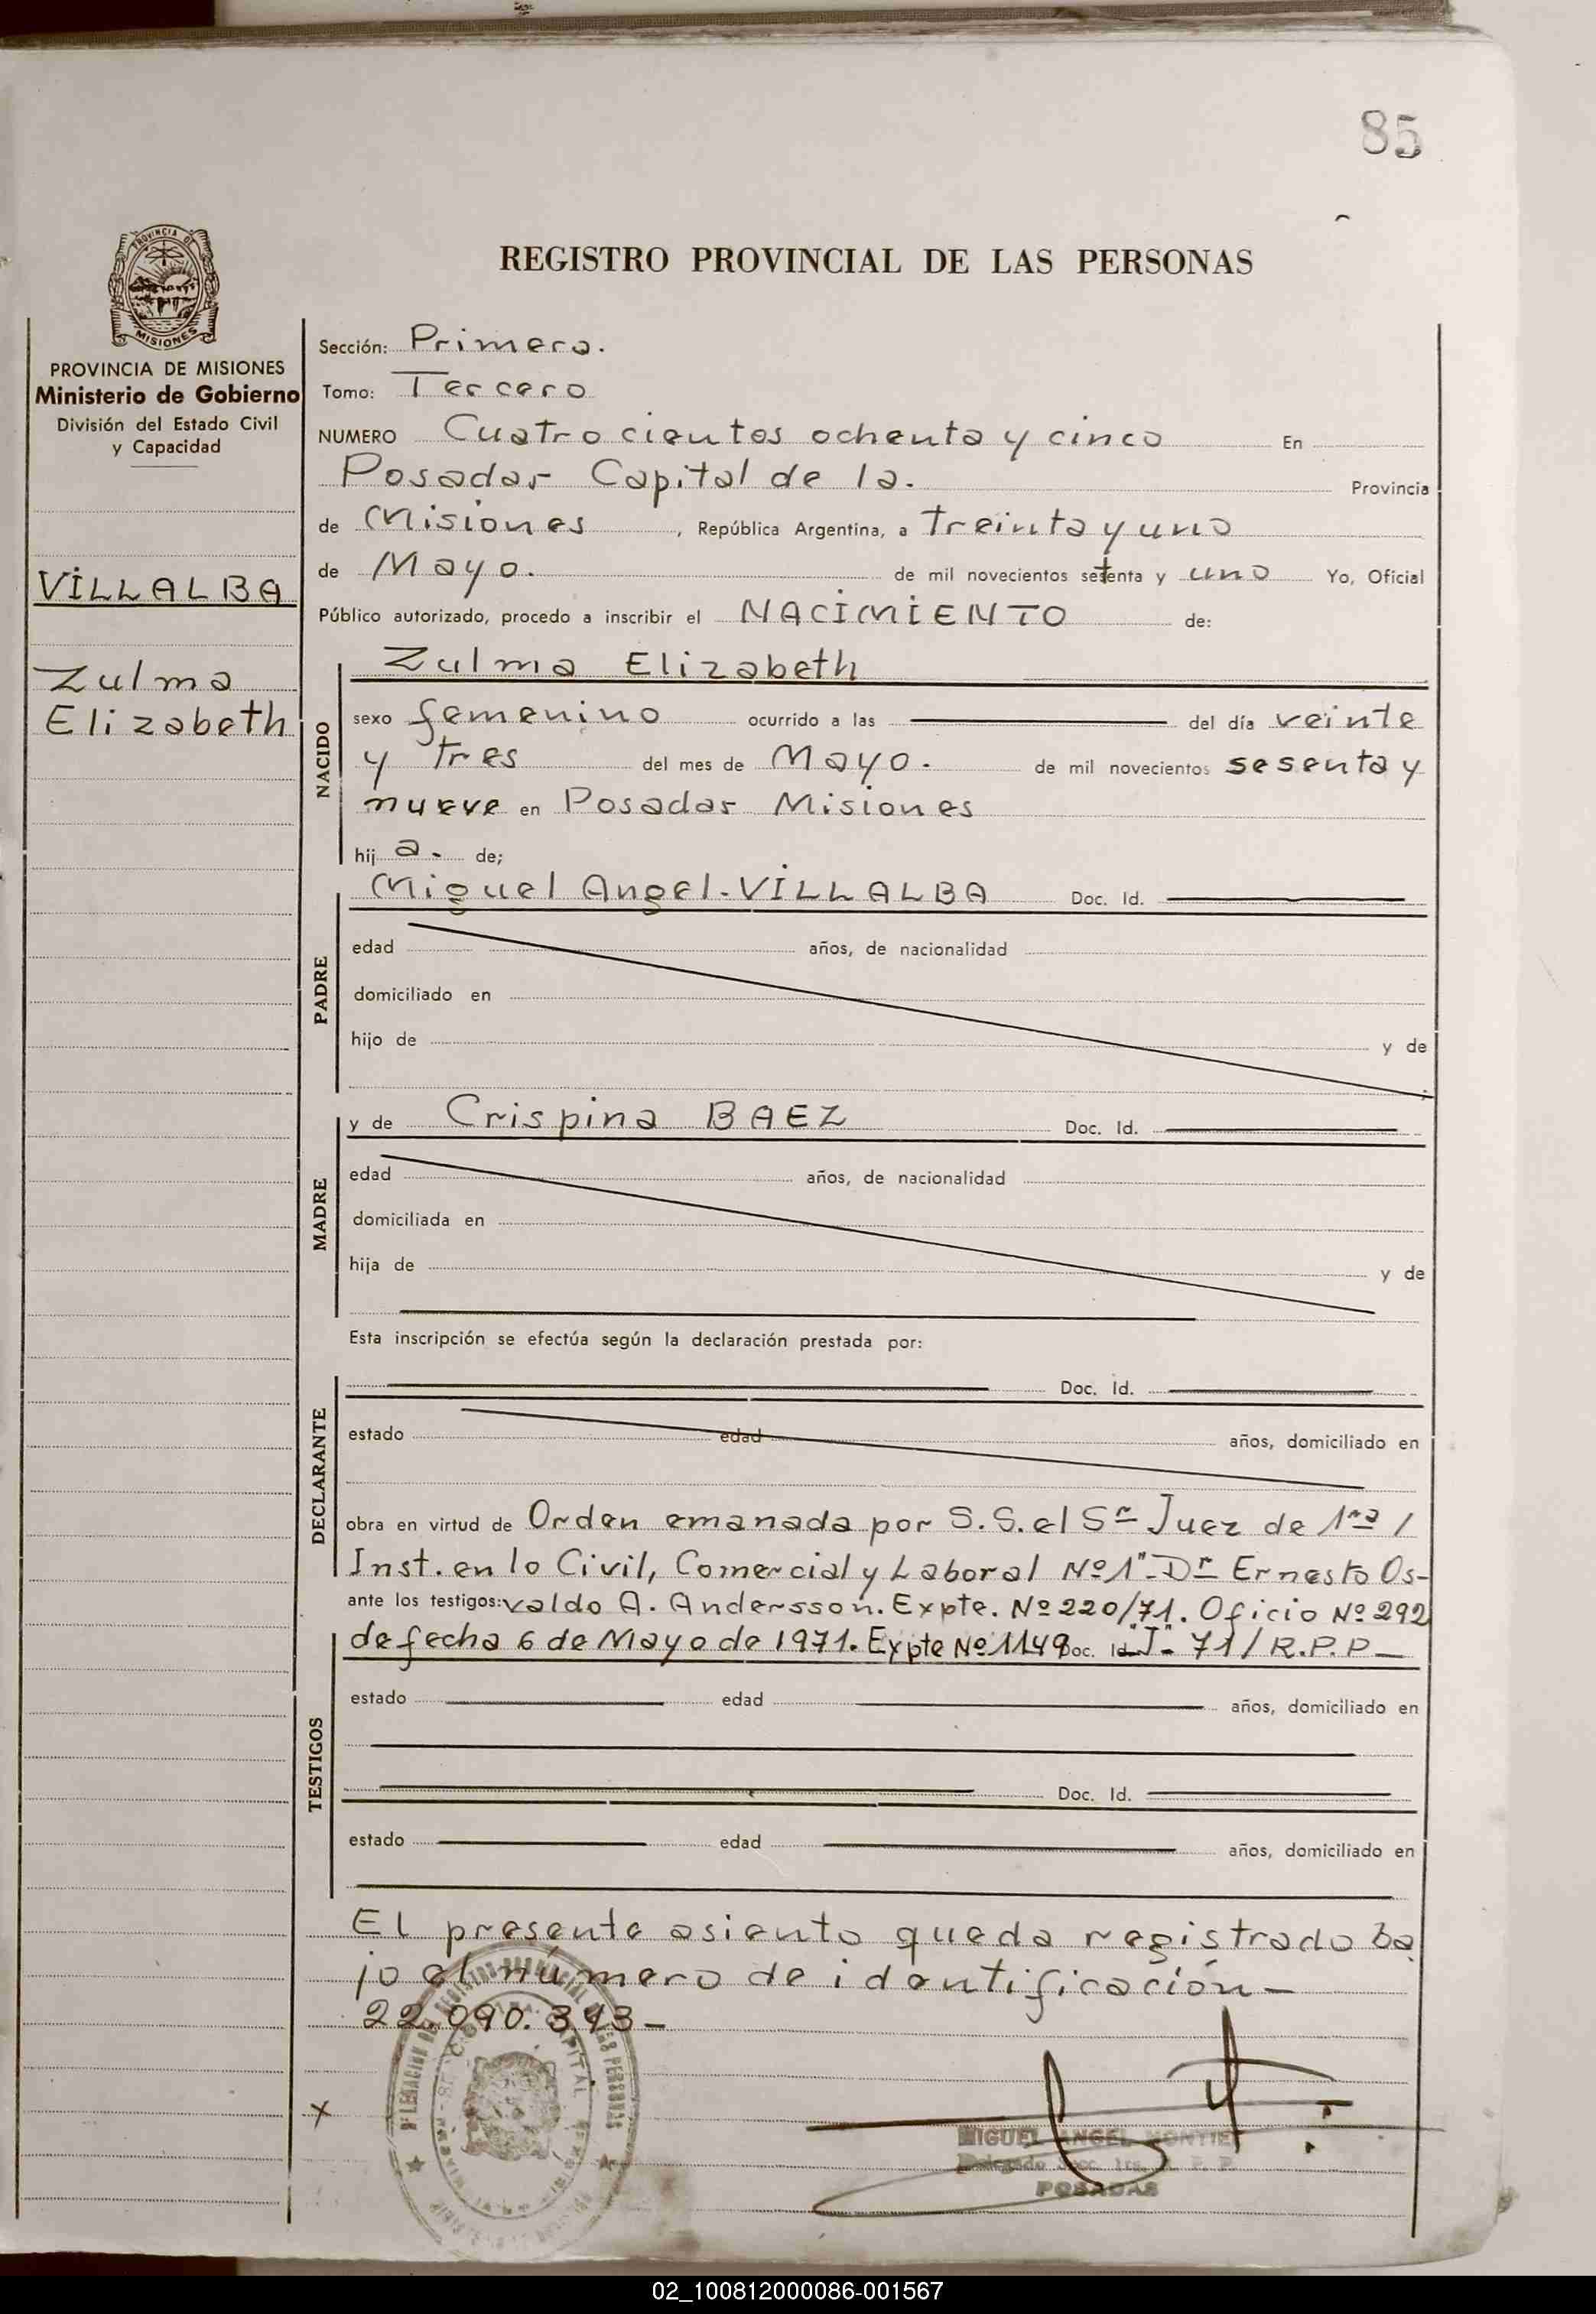 85
REGISTRO PROVINCIAL DE LAS PERSONAS
PROVINCIA DE
MISIONES
PROVINCIA DE MISIONES
Ministerio de Gobierno
División del Estado Civil
y Capacidad
VILLALBA
Zulma
Elizabeth
Sección: Primera.
Tomo: Tercero
NUMERO Cuatrocientos ochenta y cinco En
Posadas Capital de la. Provincia
de Misiones, República Argentina, a treinta y uno
de Mayo. de mil novecientos setenta y uno Yo, Oficial
Público autorizado, procedo a inscribir el NACIMIENTO de:
NACIDO
Zulma Elizabeth
sexo femenino ocurrido a las del día veinte
y tres del mes de Mayo. de mil novecientos sesenta y
nueve en Posadas Misiones
hij a. de;
PADRE
Miguel Angel-VILLALBA Doc. Id.
edad años, de nacionalidad
domiciliado en
hijo de y de
MADRE
y de Crispina BAEZ Doc. Id.
edad años, de nacionalidad
domiciliada en
hija de y de
Esta inscripción se efectúa según la declaración prestada por:
DECLARANTE
Doc. Id.
estado edad años, domiciliado en
obra en virtud de Orden emanada por S.S. el Sr Juez de 1ra /
Inst. en lo Civil, Comercial y Laboral Nº1"-Dr Ernesto Os-
ante los testigos: valdo A. Andersson. Expte. Nº 220/71. Oficio Nº 292
de fecha 6 de Mayo de 1971. Expte Nº 1149 Doc. Id. "J" 71/R.P.P-
TESTIGOS
estado edad años, domiciliado en
Doc. Id.
estado edad años, domiciliado en
El presente asiento queda registrado ba
jo el número de identificación-
22.090.393-
x
MIGUEL ANGEL MONTIEL
Delegado Secc. 1ra. R. P. P.
POSADAS
02_100812000086-001567